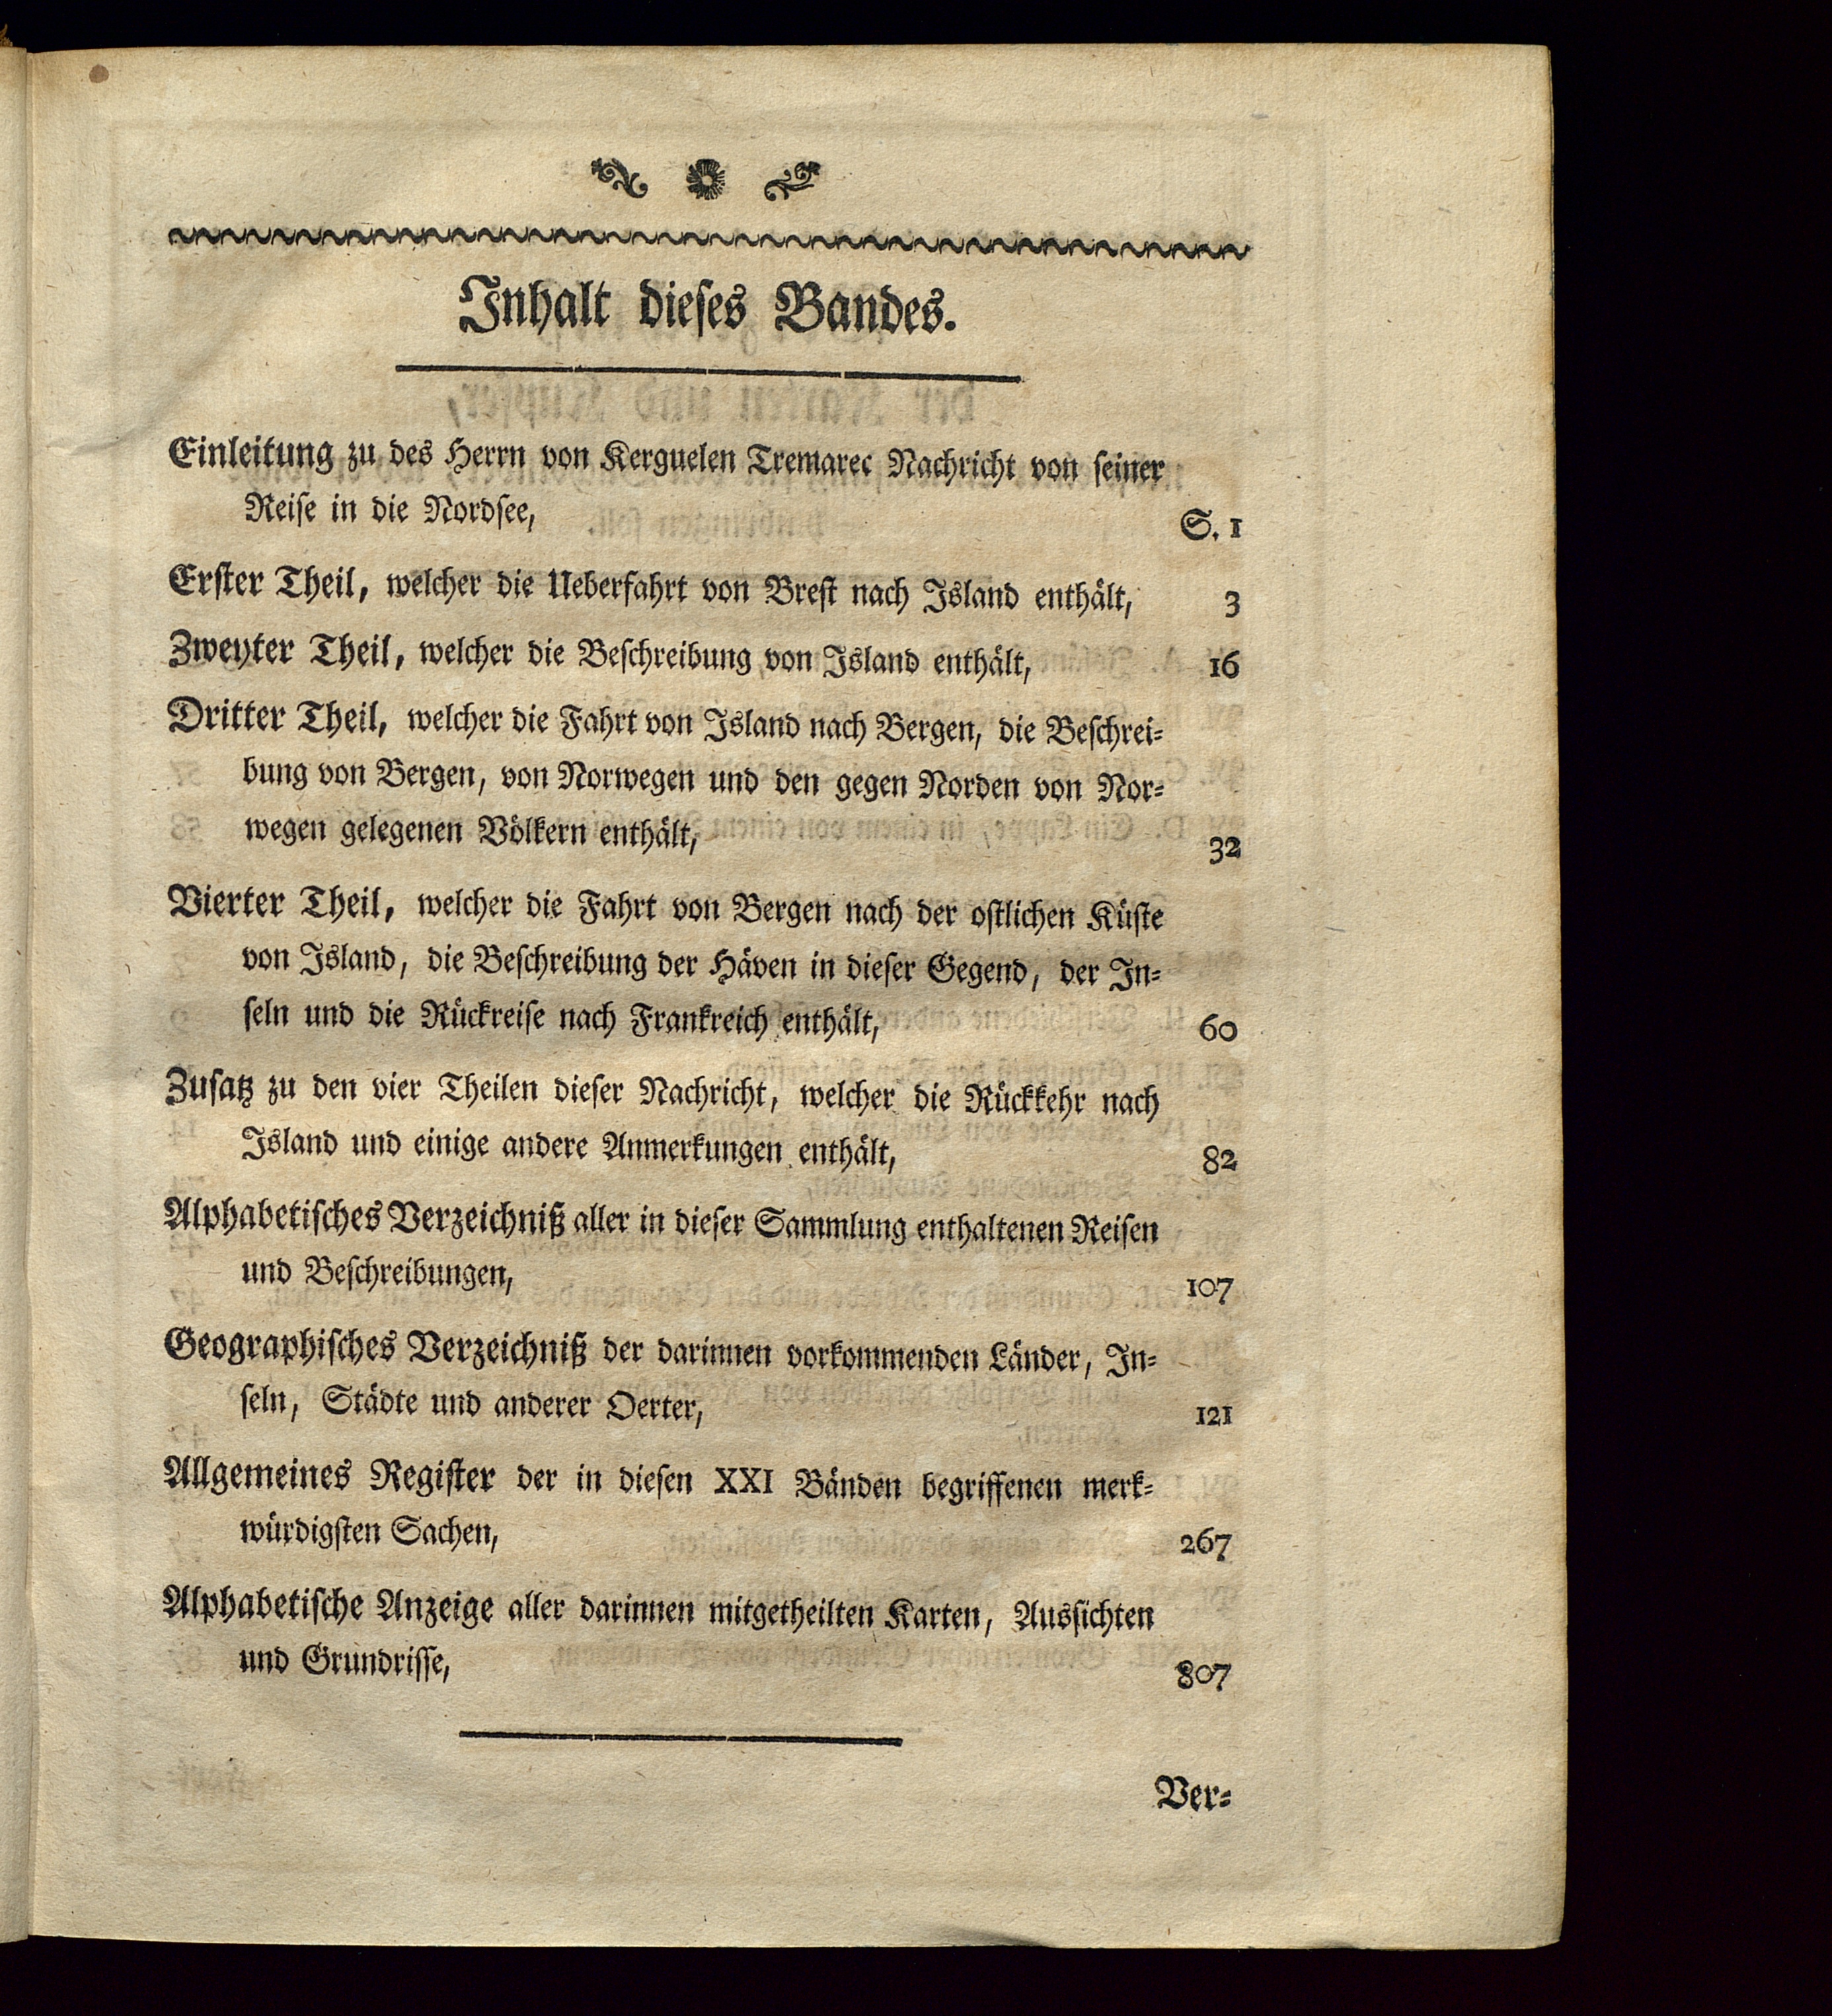 Inhalt dieses Bandes.
Einleitung zu des Herrn von Kerguelen Tremarec Nachricht von seiner
Reise in die Nordsee, S. 1
Erster Theil, welcher die Ueberfahrt von Brest nach Island enthält, 3
Zweyter Theil, welcher die Beschreibung von Island enthält, 16
Dritter Theil, welcher die Fahrt von Island nach Bergen, die Beschrei-
bung von Bergen, von Norwegen und den gegen Norden von Nor-
wegen gelegenen Völkern enthält, 32
Vierter Theil, welcher die Fahrt von Bergen nach der ostlichen Küste
von Island, die Beschreibung der Häven in dieser Gegend, der In-
seln und die Rückreise nach Frankreich enthält, 60
Zusatz zu den vier Theilen dieser Nachricht, welcher die Rückkehr nach
Island und einige andere Anmerkungen enthält, 82
Alphabetisches Verzeichniß aller in dieser Sammlung enthaltenen Reisen
und Beschreibungen, 107
Geographisches Verzeichniß der darinnen vorkommenden Länder, In-
seln, Städte und anderer Oerter, 121
Allgemeines Register der in diesen XXI Bänden begriffenen merk-
würdigsten Sachen, 267
Alphabetische Anzeige aller darinnen mitgetheilten Karten, Aussichten
und Grundrisse, 807
Ver-